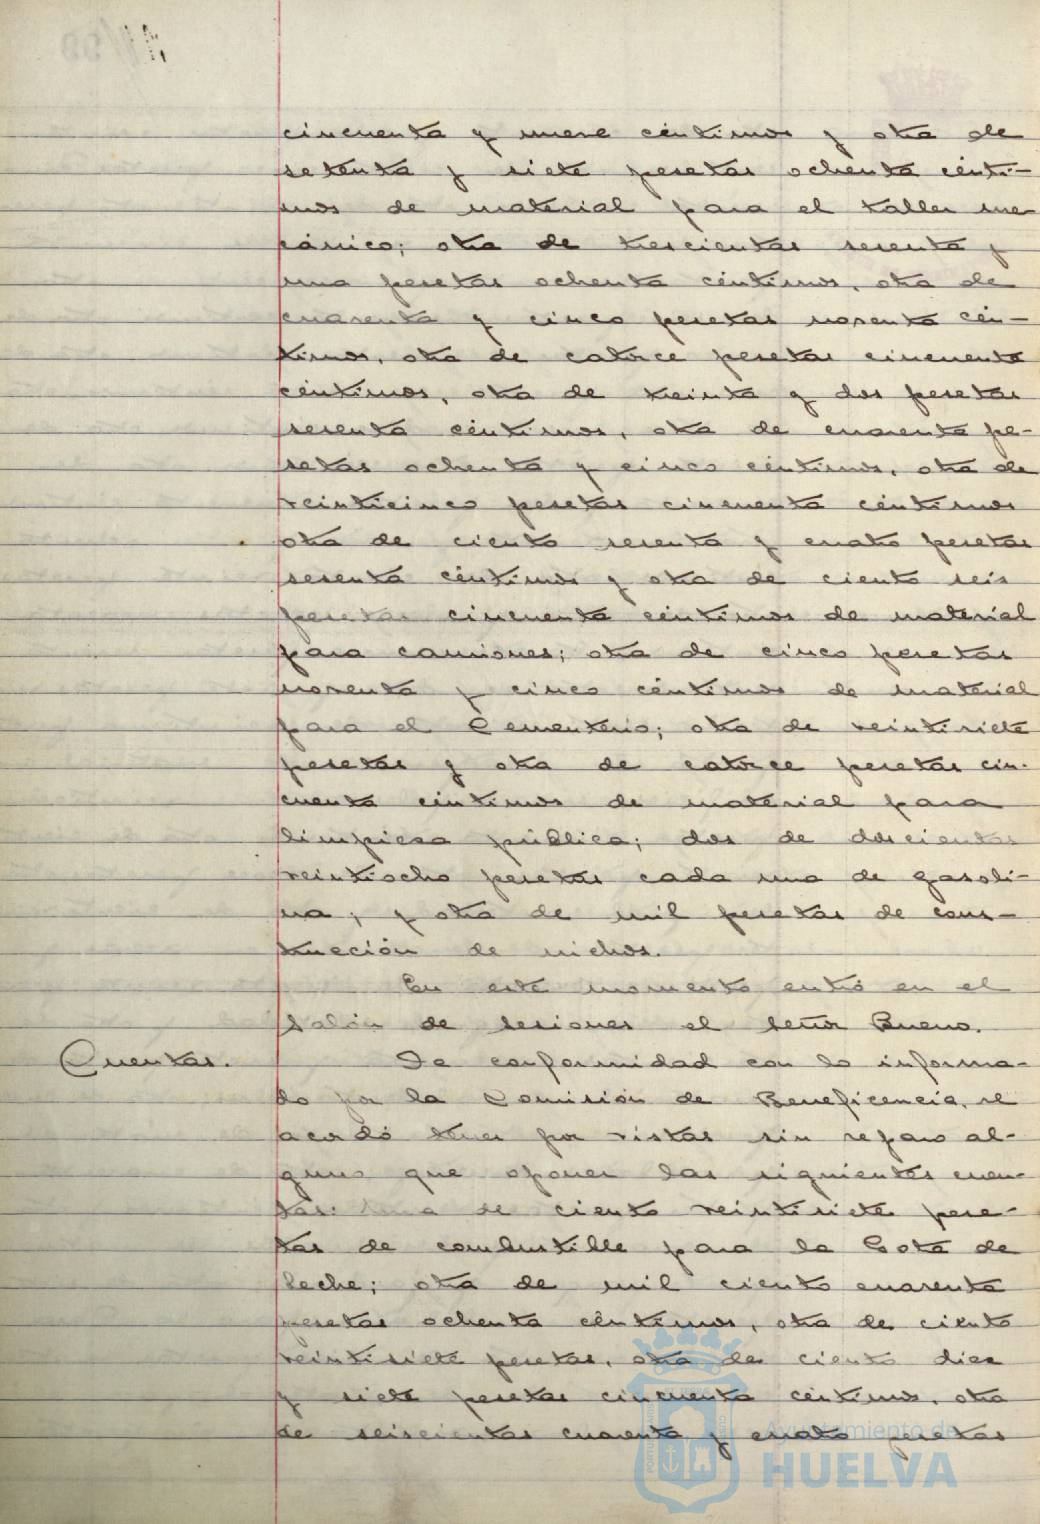 cincuenta y nueve céntimos y otra de
setenta y siete pesetas ochenta cénti-
mos de material para el taller me-
cánico; otra de trescientas sesenta y
una pesetas ochenta céntimos, otra de
cuarenta y cinco pesetas noventa cén-
timos, otra de catorce pesetas cincuenta
céntimos, otra de treinta y dos pesetas
sesenta céntimos, otra de cuarenta pe-
setas ochenta y cinco céntimos, otra de
veinticinco pesetas cincuenta céntimos
otra de ciento sesenta y cuatro pesetas
sesenta céntimos y otra de ciento seis
pesetas cincuenta céntimos de material
para camiones; otra de cinco pesetas
noventa y cinco céntimos de material
para el Cementerio; otra de veintisiete
pesetas y otra de catorce pesetas cin-
cuenta céntimos de material para
limpieza pública; dos de doscientas
veintiocho pesetas cada una de gasoli-
na; y otra de mil pesetas de cons-
trucción de nichos.
En este momento entró en el
Salón de sesiones el señor Bueno.
Cuentas. De conformidad con lo informa-
do por la Comisión de Beneficencia, se
acordó tener por vistas sin reparo al-
guno que oponer las siguientes cuen-
tas: Una de ciento veintisiete pese-
tas de combustible para la Gota de
leche; otra de mil ciento cuarenta
pesetas ochenta céntimos, otra de ciento
veintisiete pesetas, otra de ciento diez
y siete pesetas cincuenta céntimos, otra
de seiscientas cuarenta y cuatro pesetas
Ayuntamiento de
HUELVA